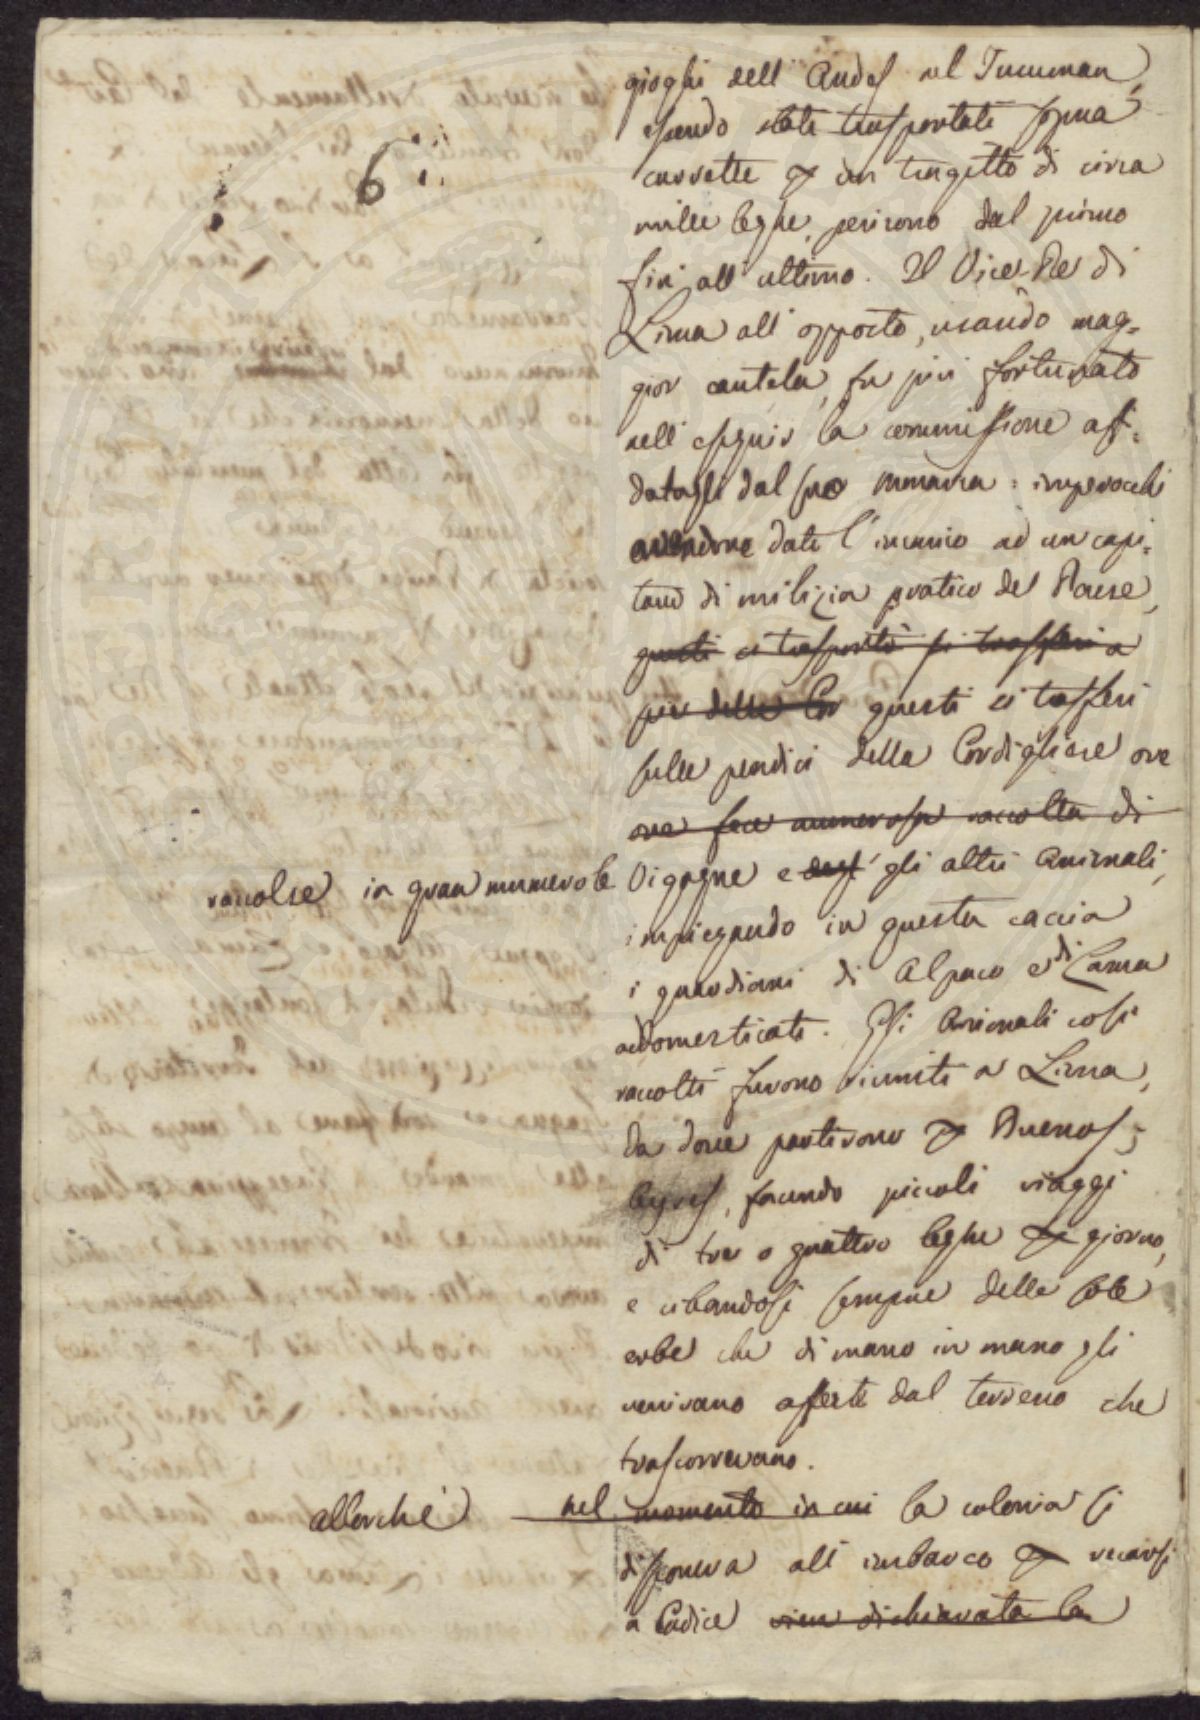 6
gioghi dell' Andes nel Tucuman,
essendo state trasportate sopra
carrette p un tragitto di circa
mille leghe, perirono dal primo
fin all' ultimo. Il Vice-Re di
Lima all' opposto, usando mag=
gior cautela, fu piu fortunato
nell' eseguir la commissione aff=
datagli dal suo monarca: imperocchè
avendone dato l'incarico ad un capi=
tano di milizia pratico del Paese,
questi si trasportò si trasferì a
per delle Cor questi si trasferì
sulle pendici della Cordigliere ove
ove fece numerosa raccolta di
raccolse in gran numero le Vigogne e degl' gli altri Animali,
impiegando in questa caccia
i guardiani di Alpaco e di Lama
addomesticati. Gli Animali così
raccolti furono riuniti a Lima,
da dove partirono p Buenos=
Ayres, facendo piccoli viaggi
di tre o quattro leghe p giorno,
e cibandosi sempre delle sole
erbe che di mano in mano gli
venivano offerte dal terreno che
trascorrevano.
allorché nel momento in cui la colonia si
disponeva all' imbarco p recarsi
a Cadice vien dichiarata la